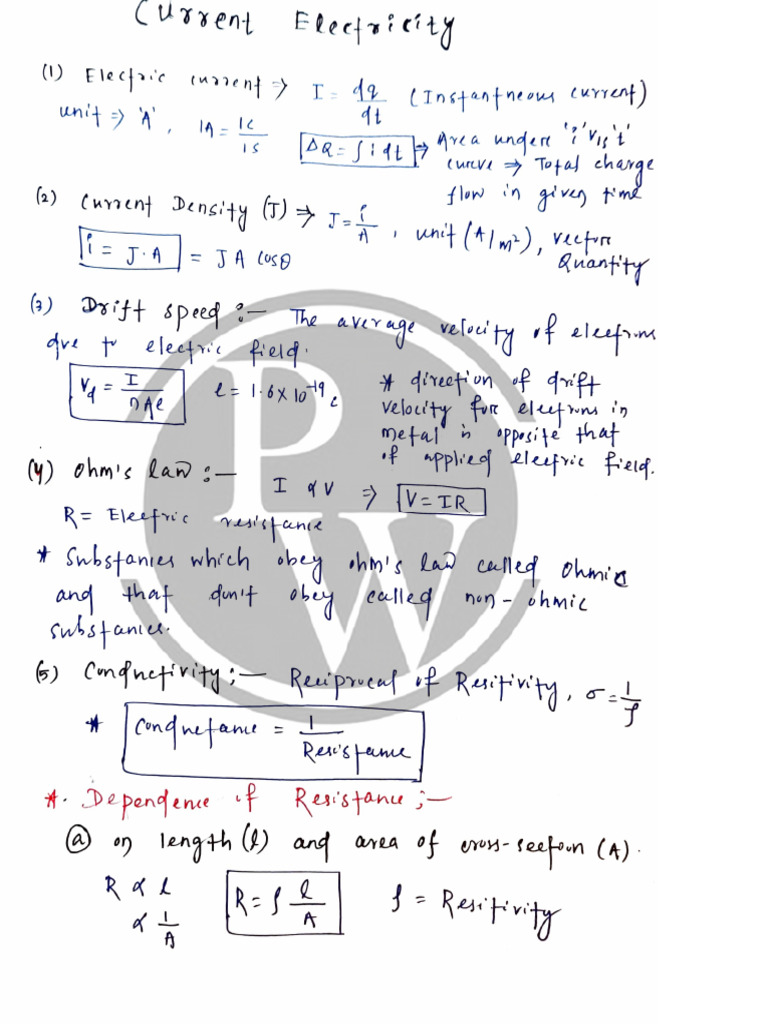 Current Electricity
(1) Electric current ⇒ I = dq/dt (Instantneous current)
unit ⇒ 'A', 1A = 1C/1S
ΔQ = ∫idt ⇒ Area under 'i' v/s 't'
curve ⇒ Total charge
flow in given time
(2) Current Density (J) ⇒ J = i/A, unit (A/m²), vector
Quantity
i = J·A = JA cosθ
(3) Drift speed :— The average velocity of electrons
due to electric field.
Vd = I/nAe e = 1.6×10⁻¹⁹ c
* direction of drift
velocity for electrons in
metal is opposite that
of applied electric field.
(4) Ohm's law :— I ∝ V ⇒ V = IR
R = Electric resistance
* Substanies which obey ohm's law called ohmic
and that don't obey called non-ohmic
substanies.
(5) Conductivity :— Reciprocal of Resitivity, σ = 1/ρ
* Conductance = 1/Resistance
*. Dependence of Resistance :—
(a) on length (l) and area of cross-section (A).
R ∝ l
∝ 1/A
R = ρ l/A
ρ = Resitivity
PW